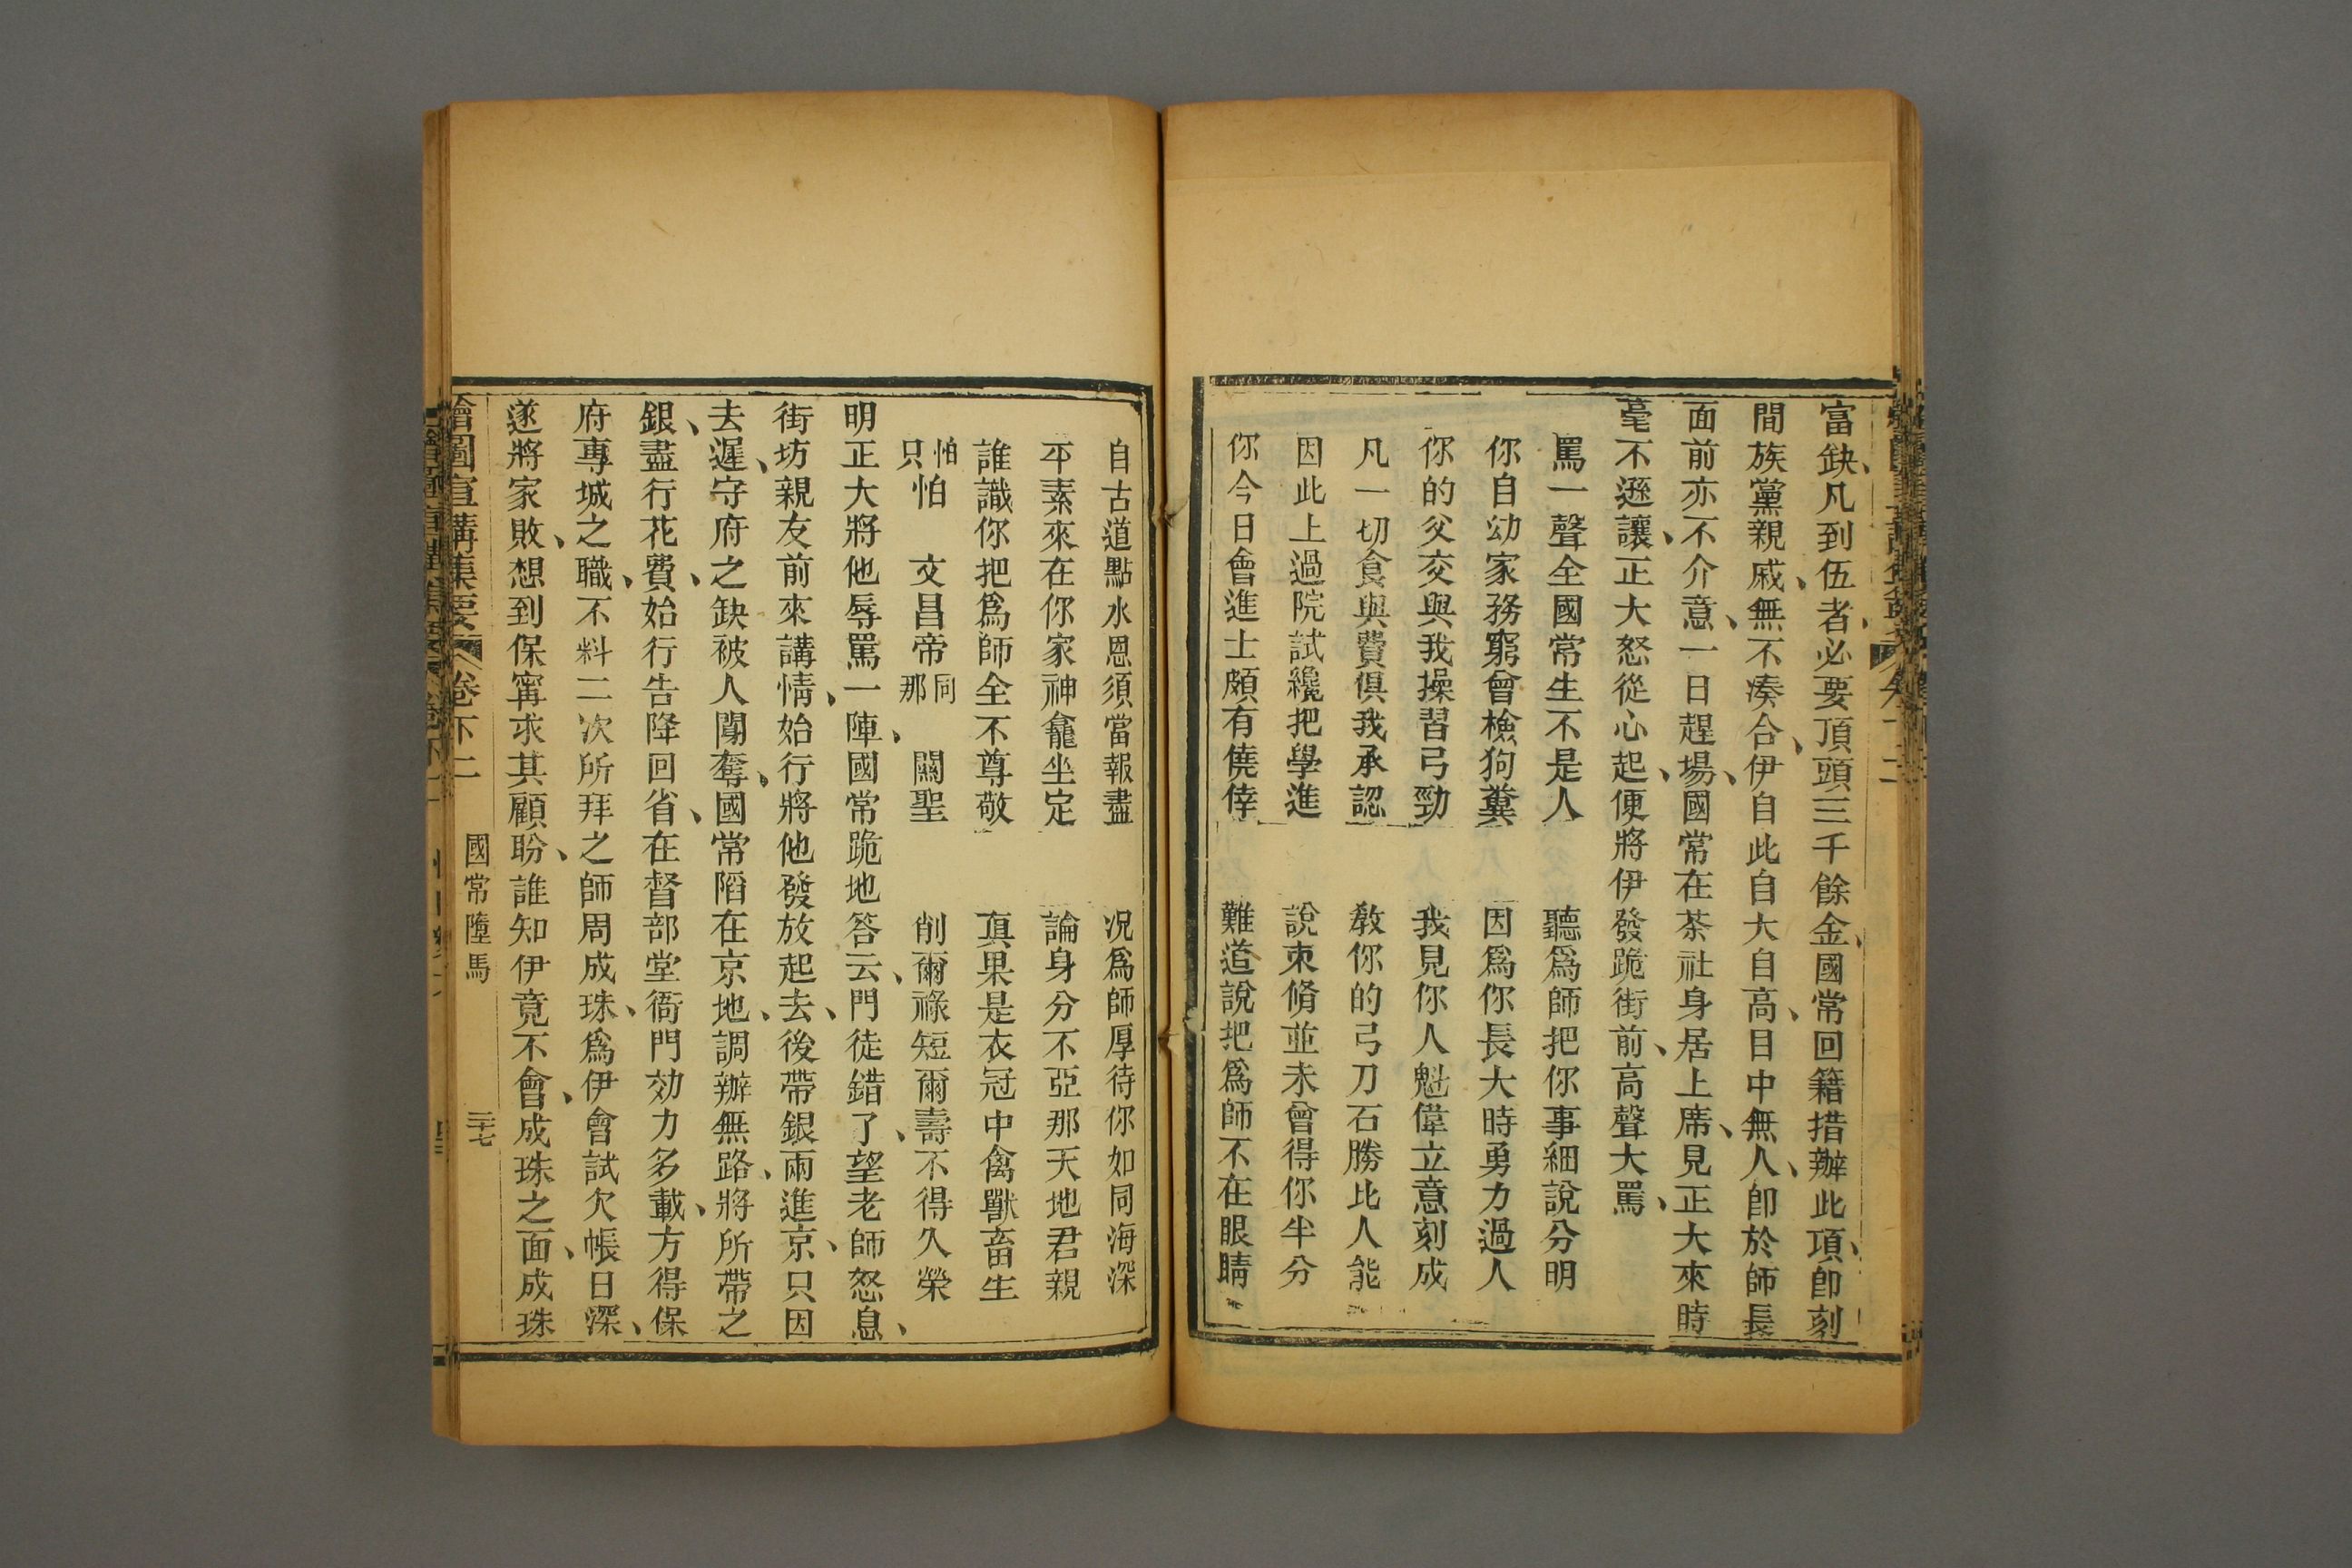 富缺、凡到伍者、必要頂頭三千餘金、國常回籍措辦此項、即刻
間族黨親戚、無不湊合、伊自此自大自高、目中無人、卽於師長
面前亦不介意、一日趕場、國常在茶社身居上席、見正大來時
毫不遜讓、正大怒從心起、便將伊發跪街前、高聲大罵、
罵一聲全國常生不是人 聽爲師把你事細說分明
你自幼家務窮曾檢狗糞 因爲你長大時勇力過人
你的父交與我操習弓勁 我見你人魁偉立意刻成
凡一切食與費俱我承認 教你的弓刀石勝比人能
因此上過院試纔把學進 說束脩並未曾得你半分
你今日會進士頗有僥倖 難道說把爲師不在眼睛
自古道點水恩須當報盡 况爲師厚待你如同海深
平素來在你家神龕坐定 論身分不亞那天地君親
誰識你把爲師全不尊敬 眞果是衣冠中禽獸畜生
只怕怕 文昌帝那同 關聖 削爾祿短爾壽不得久榮
明正大將他辱罵一陣、國常跪地答云、門徒錯了、望老師怒息、
街坊親友前來講情、始行將他發放起去、後帶銀兩進京、只因
去遲、守府之缺被人闖奪、國常陷在京地、調辦無路、將所帶之
銀、盡行花費、始行告降回省、在督部堂衙門効力多載、方得保
府專城之職、不料二次所拜之師周成珠、爲伊會試欠帳日深、
遂將家敗、想到保甯求其顧盼、誰知伊竟不會、成珠之面、成珠
繪圖宣講集要 卷下二 國常墮馬 三十七